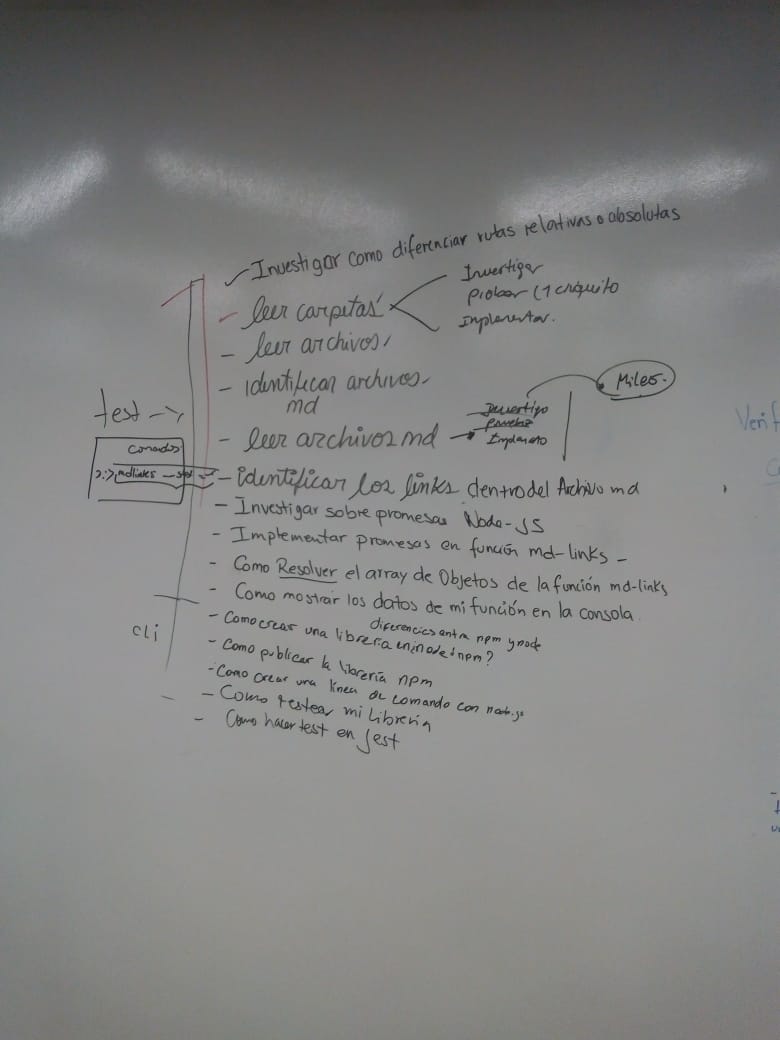 ✓ Investigar como diferenciar rutas relativas o absolutas
- leer carpetas
Investigar
Probar (1 chiquito
Implementar.
- leer archivos
- identificar archivos
md
Miles.
test ->
- leer archivos md ->
Investigo
Pruebas
Implemento
- identificar los links dentro del Archivo md
- Investigar sobre promesas Node-JS
- Implementar promesas en función md-links -
- Como Resolver el array de Objetos de la función md-links
- Como mostrar los datos de mi función en la consola.
cli
diferencias entre npm y node
- Como crear una libreria en node npm?
- Como publicar la libreria npm
- Como crear una línea de comando con
- Como testear mi Libreria
- Como hacer test en jest
Verif